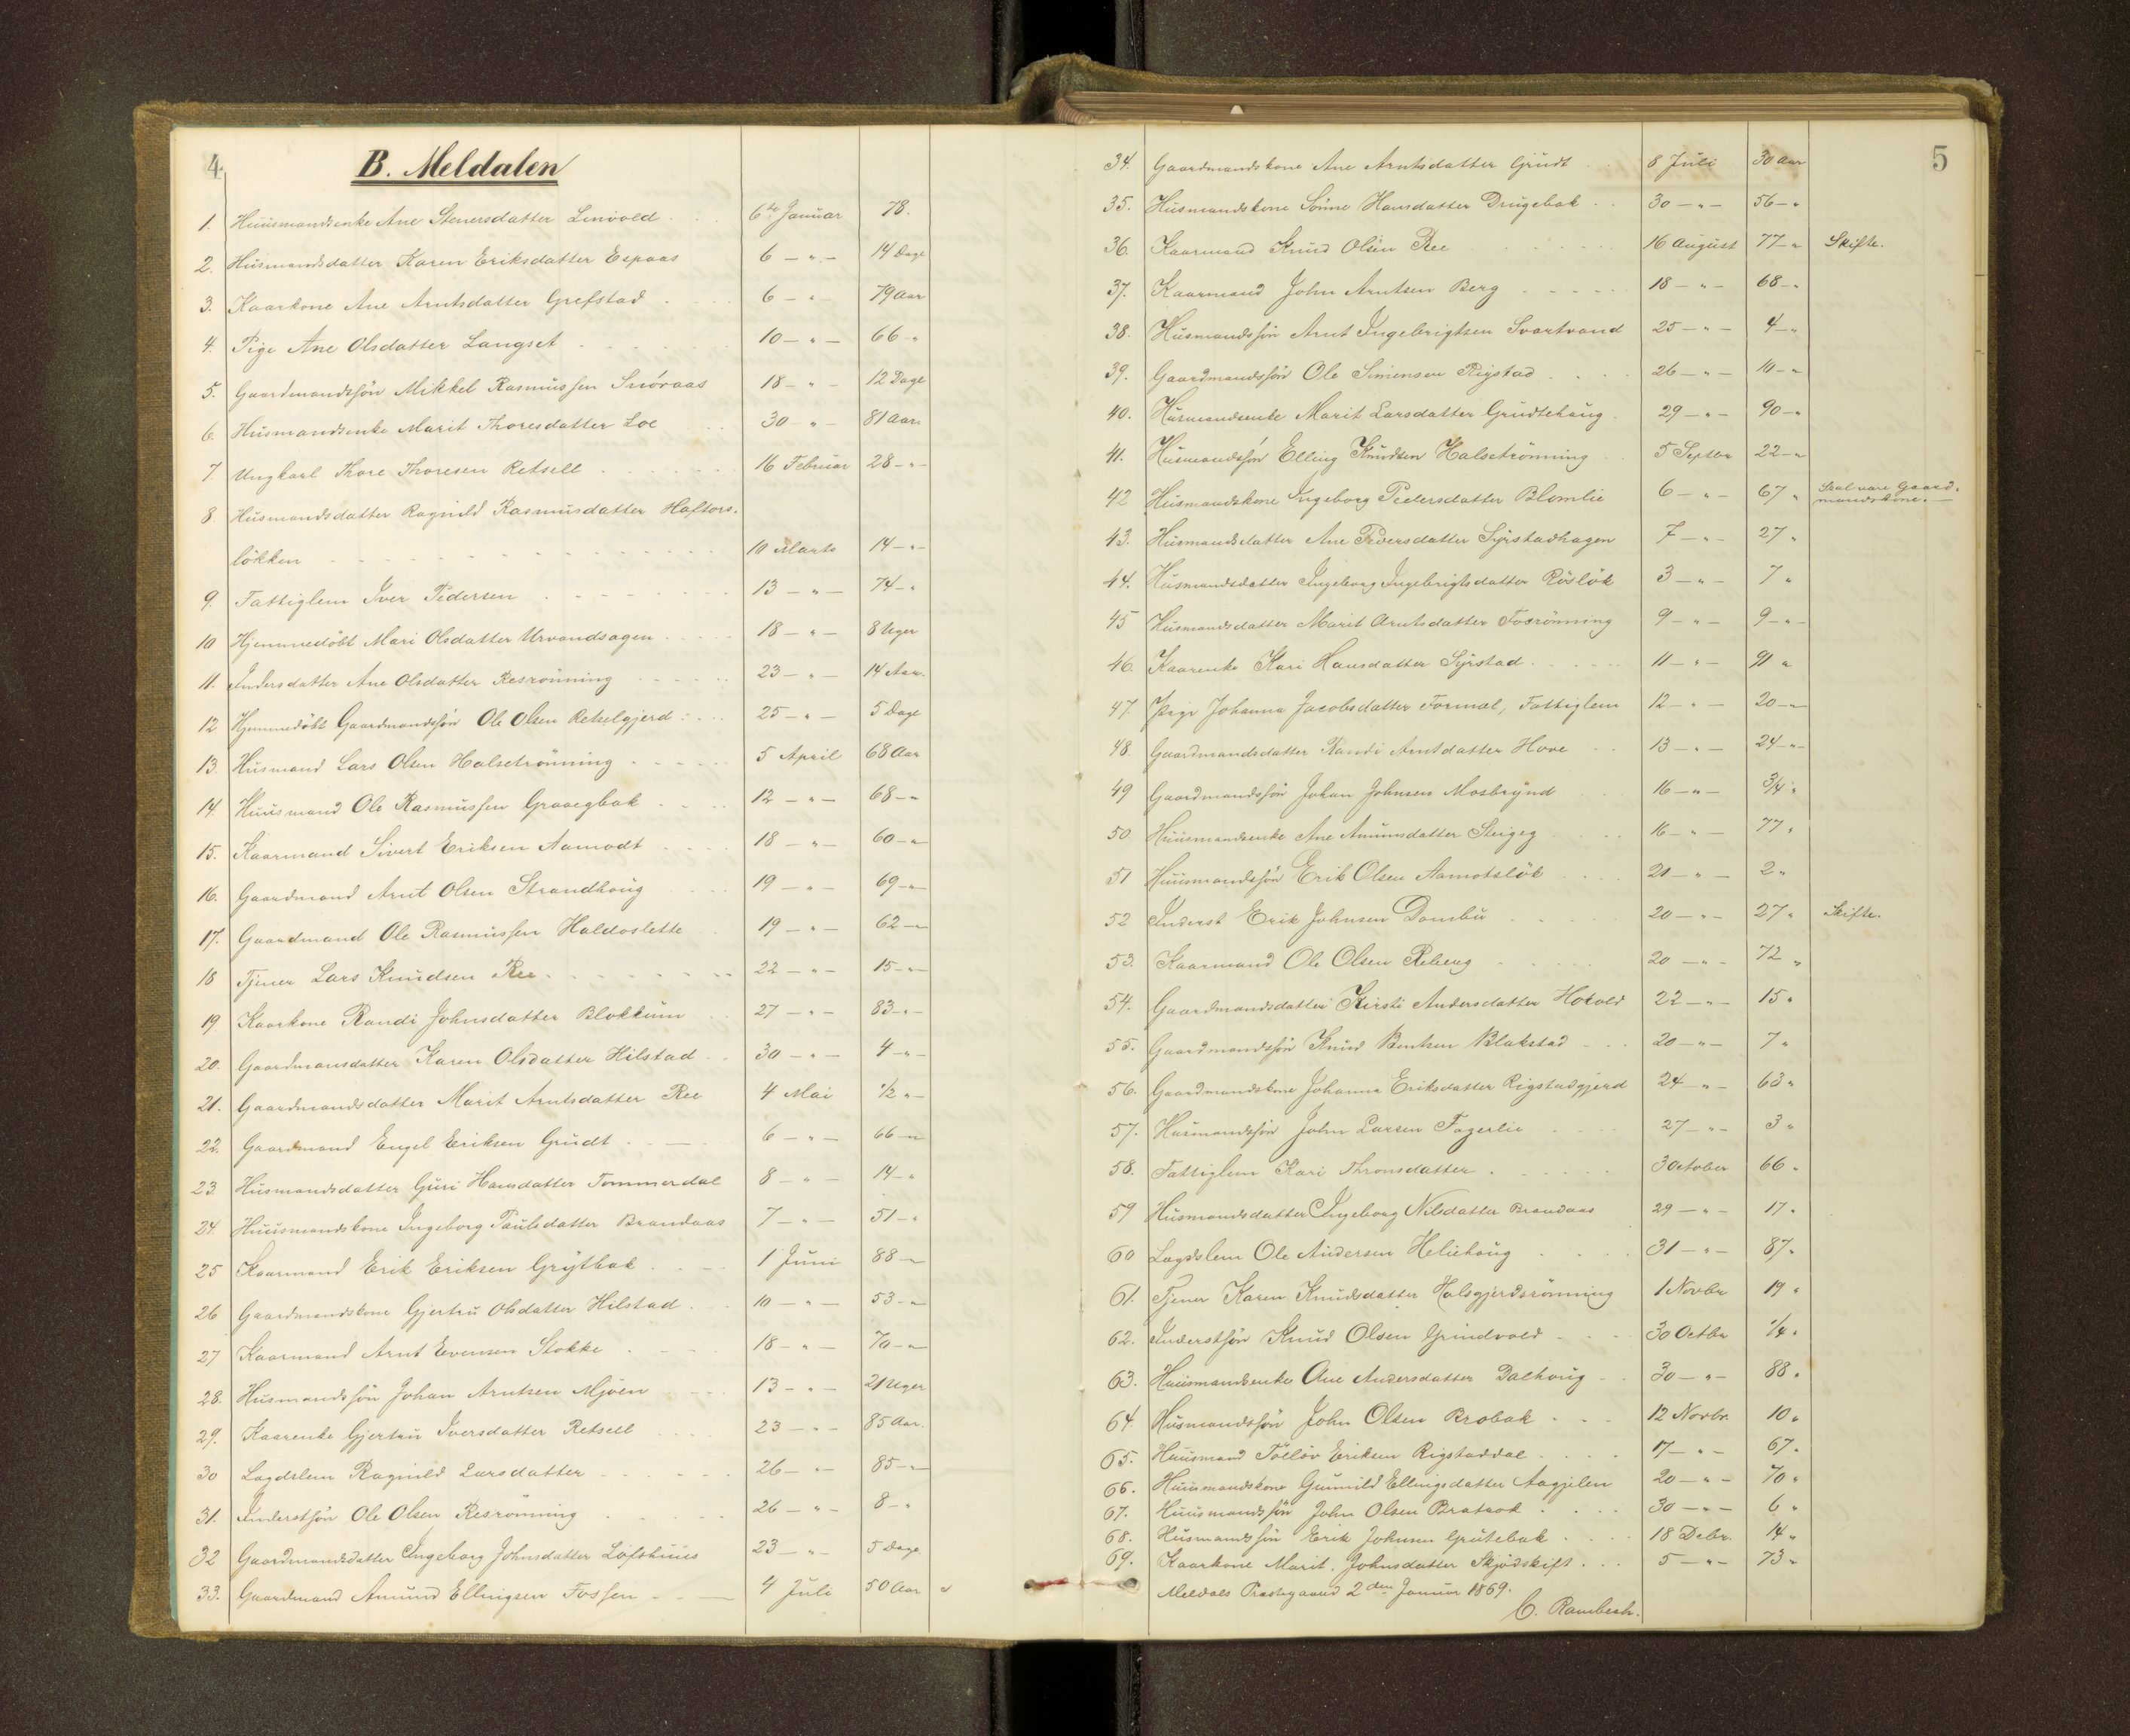 4
B. Meldalen
1. Huusmandsenke Ane Stenersdatter Linvold 6te Januar 78.
2. Husmandsdatter Karen Eriksdatter Espaas 6 — " — 14 Dage
3. Kaarkone Ane Arntsdatter Grefstad 6 — " — 79 Aar
4. Pige Ane Olsdatter Langset 10 — " — 66 - "
5. Gaardmandssön Mikkel Rasmussen Snóraas 18 — " — 12 Dage
6. Husmandsenke Marit Thoresdatter Loe 30 — " — 81 Aar.
7. Ungkarl Thore Thoresen Retsell 16 Februar 28 - " -
8. Husmandsdatter Ragnild Rasmusdatter Haftors.
lökken 10 Marts 14 - " -
9. Fattiglem Iver Pedersen 13 — " — 74 - "
10 Hjemmedöbt Mari Olsdatter Urvandsagen 18 — " — 8 Uger
11. Indersdatter Ane Olsdatter Resrönning 23 — " — 14 Aar.
12 Hjemmedöbt Gaardmandssön Ole Olsen Retselgjerd 25 — " — 5 Dage
13. Husmand Lars Olsen Halsetrönning 5 April 68 Aar
14. Huusmand Ole Rasmussen Graaegbak 12 — " — 68 - "
15. Kaarmand Sivert Eriksen Aamodt 18 — " — 60 - "
16. Gaardmand Arnt Olsen Strandhoug 19 — " — 69 - "
17. Gaardmand Ole Rasmussen Haldoslette 19 — " — 62 - "
18 Tjener Lars Knudsen Ree 22 — " — 15 - "
19 Kaarkone Randi Johnsdatter Blokkum 27 — " — 83 - "
20. Gaardmansdatter Karen Olsdatter Hilstad 30 — " — 4 - " -
21. Gaardmandsdatter Marit Arntsdatter Ree 4 Mai 1/2 " -
22. Gaardmand Engel Eriksen Grudt 6 — " — 66 - "
23 Husmandsdatter Guri Hansdatter Tommerdal 8 — " — 14 - "
24. Huusmandskone Ingeborg Paulsdatter Brandaas 7 — " — 51 - "
25 Kaarmand Erik Eriksen Grytbak 1 Juni 88 - "
26 Gaardmandskone Gjertru Olsdatter Hilstad 10 — " — 53 - "
27 Kaarmand Arnt Evensen Stokke 18 — " — 70 - "
28. Husmandssön Johan Arntsen Mjöen 13 — " — 21 Uger
29. Kaarenke Gjertru Iversdatter Retsell 23 — " — 85 Aar.
30 Lagdslem Ragnild Larsdatter 26 — " — 85 - "
31. Inderstsön Ole Olsen Resrönning 26 — " — 8 - "
32 Gaardmandsdatter Ingeborg Johnsdatter Löfshuus 23 — " — 5 Dage
33. Gaardmand Amund Ellingsen Fossen 4 Juli 50 Aar
5
34. Gaardmandskone Ane Arntsdatter Grudt 8 Juli 30 Aar
35. Husmandskone Sönne Hansdatter Drugebak 30 — " — 56 - "
36. Kaarmand Knud Olsen Ree 16 August 77 - " Skifte.
37. Kaarmand John Arntsen Berg 18 — " — 68 - "
38. Husmandssön Arnt Ingebrigtsen Svartvand 25 — " — 4 - "
39. Gaardmandssön Ole Simensen Rigstad 26 — " — 10 - "
40. Husmandsenke Marit Larsdatter Grudtehaug 29 — " — 90 - "
41. Husmandssön Elling Knudsen Halsetrönning 5 Septbr 22 - "
42 Husmandskone Ingeborg Pedersdatter Blomlie 6 — " — 67 " Skal være Gaard-
mandskone.
43. Husmandsdatter Ane Iversdatter Syrstadhagen 7 — " — 27 "
44. Husmandsdatter Ingeborg Ingebrigtsdatter Röslök 3 — " — 7 "
45 Husmandsdatter Marit Arntsdatter Fosrönning 9 — " — 9 - " -
46. Kaarenke Kari Hansdatter Syrstad 11 — " — 91 "
47. Pige Johanna Jacobsdatter Formæl, Fattiglem 12 — " — 20 - "
48. Gaardmandsdatter Randi Arntdatter Hove 13 — " — 24 - "
49 Gaardmandssön Johan Johnsen Mosbrynd 16 — " — 3/4 "
50. Huusmandsenke Ane Amunsdatter Steigeg 16 — " — 77 "
51 Huusmandssön Erik Olsen Aamotslök 21 — " — 2 "
52 Inderst Erik Johnsen Dombu 20 — " — 27 " Skifte.
53. Kaarmand Ole Olsen Reberg 20 — " — 72 "
54. Gaardmandsdatter Kirsti Andersdatter Hovold 22 — " — 15 "
55. Gaardmandssön Knud Bentsen Blakstad 20 — " — 7 "
56. Gaardmandskone Johanna Eriksdatter Rigstadgjerd 24 — " — 63 "
57. Husmandssön John Larsen Fagerlie 27 — " — 3 "
58. Fattiglem Kari Thronsdatter 3 October 66 "
59 Husmandsdatter Ingeborg Nilsdatter Brandaas 29 — " — 17 "
60 Lagdslem Ole Andersen Heliehoug 31 — " — 87 "
61. Tjener Karen Knudsdatter Halsgjerdsrönning 1 Novbr 19 "
62. Inderstsön Knud Olsen Grindvold 30 Octbr 1/4 "
63. Huusmandsenke Ane Andersdatter Dalhoug 30 — " — 88 "
64 Husmandssön John Olsen Brobak 12 Novbr. 10 "
65. Huusmand Tölløv Eriksen Rigstaddal 17 — " — 67 "
66. Huusmandskone Gunnild Ellingsdatter Aagjelen 20 — " — 70 "
67. Huusmandssön John Olsen Bratrok 30 — " — 6 "
68. Husmandssön Erik Johnsen Grutebak 18 Debr. 14 "
69. Kaarkone Marit Johnsdatter Skjödskift 5 — " — 73 "
Meldals Præstegaard 2den Januar 1869.
C. Rambech.